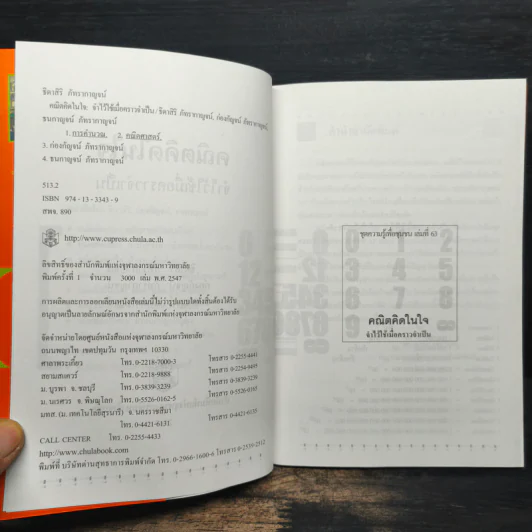 ธิดาสิริ ภัทรากาญจน์
คณิตคิดในใจ: จำไว้ใช้เมื่อคราวจำเป็น / ธิดาสิริ ภัทรากาญจน์, ก่องกัญจน์ ภัทรากาญจน์,
ธนกาญจน์ ภัทรากาญจน์
1. การคำนวณ. 2. คณิตศาสตร์.
3. ก่องกัญจน์ ภัทรากาญจน์
4. ธนกาญจน์ ภัทรากาญจน์
513.2
ISBN 974-13-3343-9
สพจ. 890
http://www.cupress.chula.ac.th
ลิขสิทธิ์ของสำนักพิมพ์แห่งจุฬาลงกรณ์มหาวิทยาลัย
พิมพ์ครั้งที่ 1 จำนวน 3000 เล่ม พ.ศ. 2547
การผลิตและการลอกเลียนหนังสือเล่มนี้ไม่ว่ารูปแบบใดทั้งสิ้นต้องได้รับ
อนุญาตเป็นลายลักษณ์อักษรจากสำนักพิมพ์แห่งจุฬาลงกรณ์มหาวิทยาลัย
จัดจำหน่ายโดยศูนย์หนังสือแห่งจุฬาลงกรณ์มหาวิทยาลัย
ถนนพญาไท เขตปทุมวัน กรุงเทพฯ 10330
ศาลาพระเกี้ยว โทร. 0-2218-7000-3 โทรสาร 0-2255-4441
สยามสแควร์ โทร. 0-2218-9888 โทรสาร 0-2254-9495
ม. บูรพา จ. ชลบุรี โทร. 0-3839-3239 โทรสาร 0-3839-3239
ม. นเรศวร จ. พิษณุโลก โทร. 0-5526-0162-5 โทรสาร 0-5526-0165
มทส. (ม. เทคโนโลยีสุรนารี) จ. นครราชสีมา
โทร. 0-4421-6131 โทรสาร 0-4421-6135
CALL CENTER โทร. 0-2255-4433
http://www.chulabook.com
พิมพ์ที่ บริษัทด่านสุทธาการพิมพ์จำกัด โทร. 0-2966-1600-6 โทรสาร 0-2539-2512
ชุดความรู้เพื่อชุมชน เล่มที่ 63
คณิตคิดในใจ
จำไว้ใช้เมื่อคราวจำเป็น